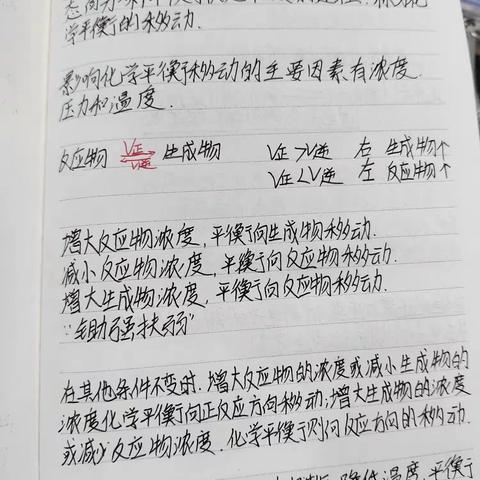 学平衡的移动.
影响化学平衡移动的主要因素有浓度.
压力和温度.
反应物 V正 V逆 生成物 V正>V逆 右 生成物↑
V正<V逆 左 反应物↑
增大反应物浓度,平衡向生成物移动.
减小反应物浓度,平衡向反应物移动.
增大生成物浓度,平衡向反应物移动.
"锄强扶弱"
在其他条件不变时.增大反应物的浓度或减小生成物的
浓度化学平衡向正反应方向移动;增大生成物的浓度
或减少反应物浓度.化学平衡则向反应方向的移动.
降低温度,平衡